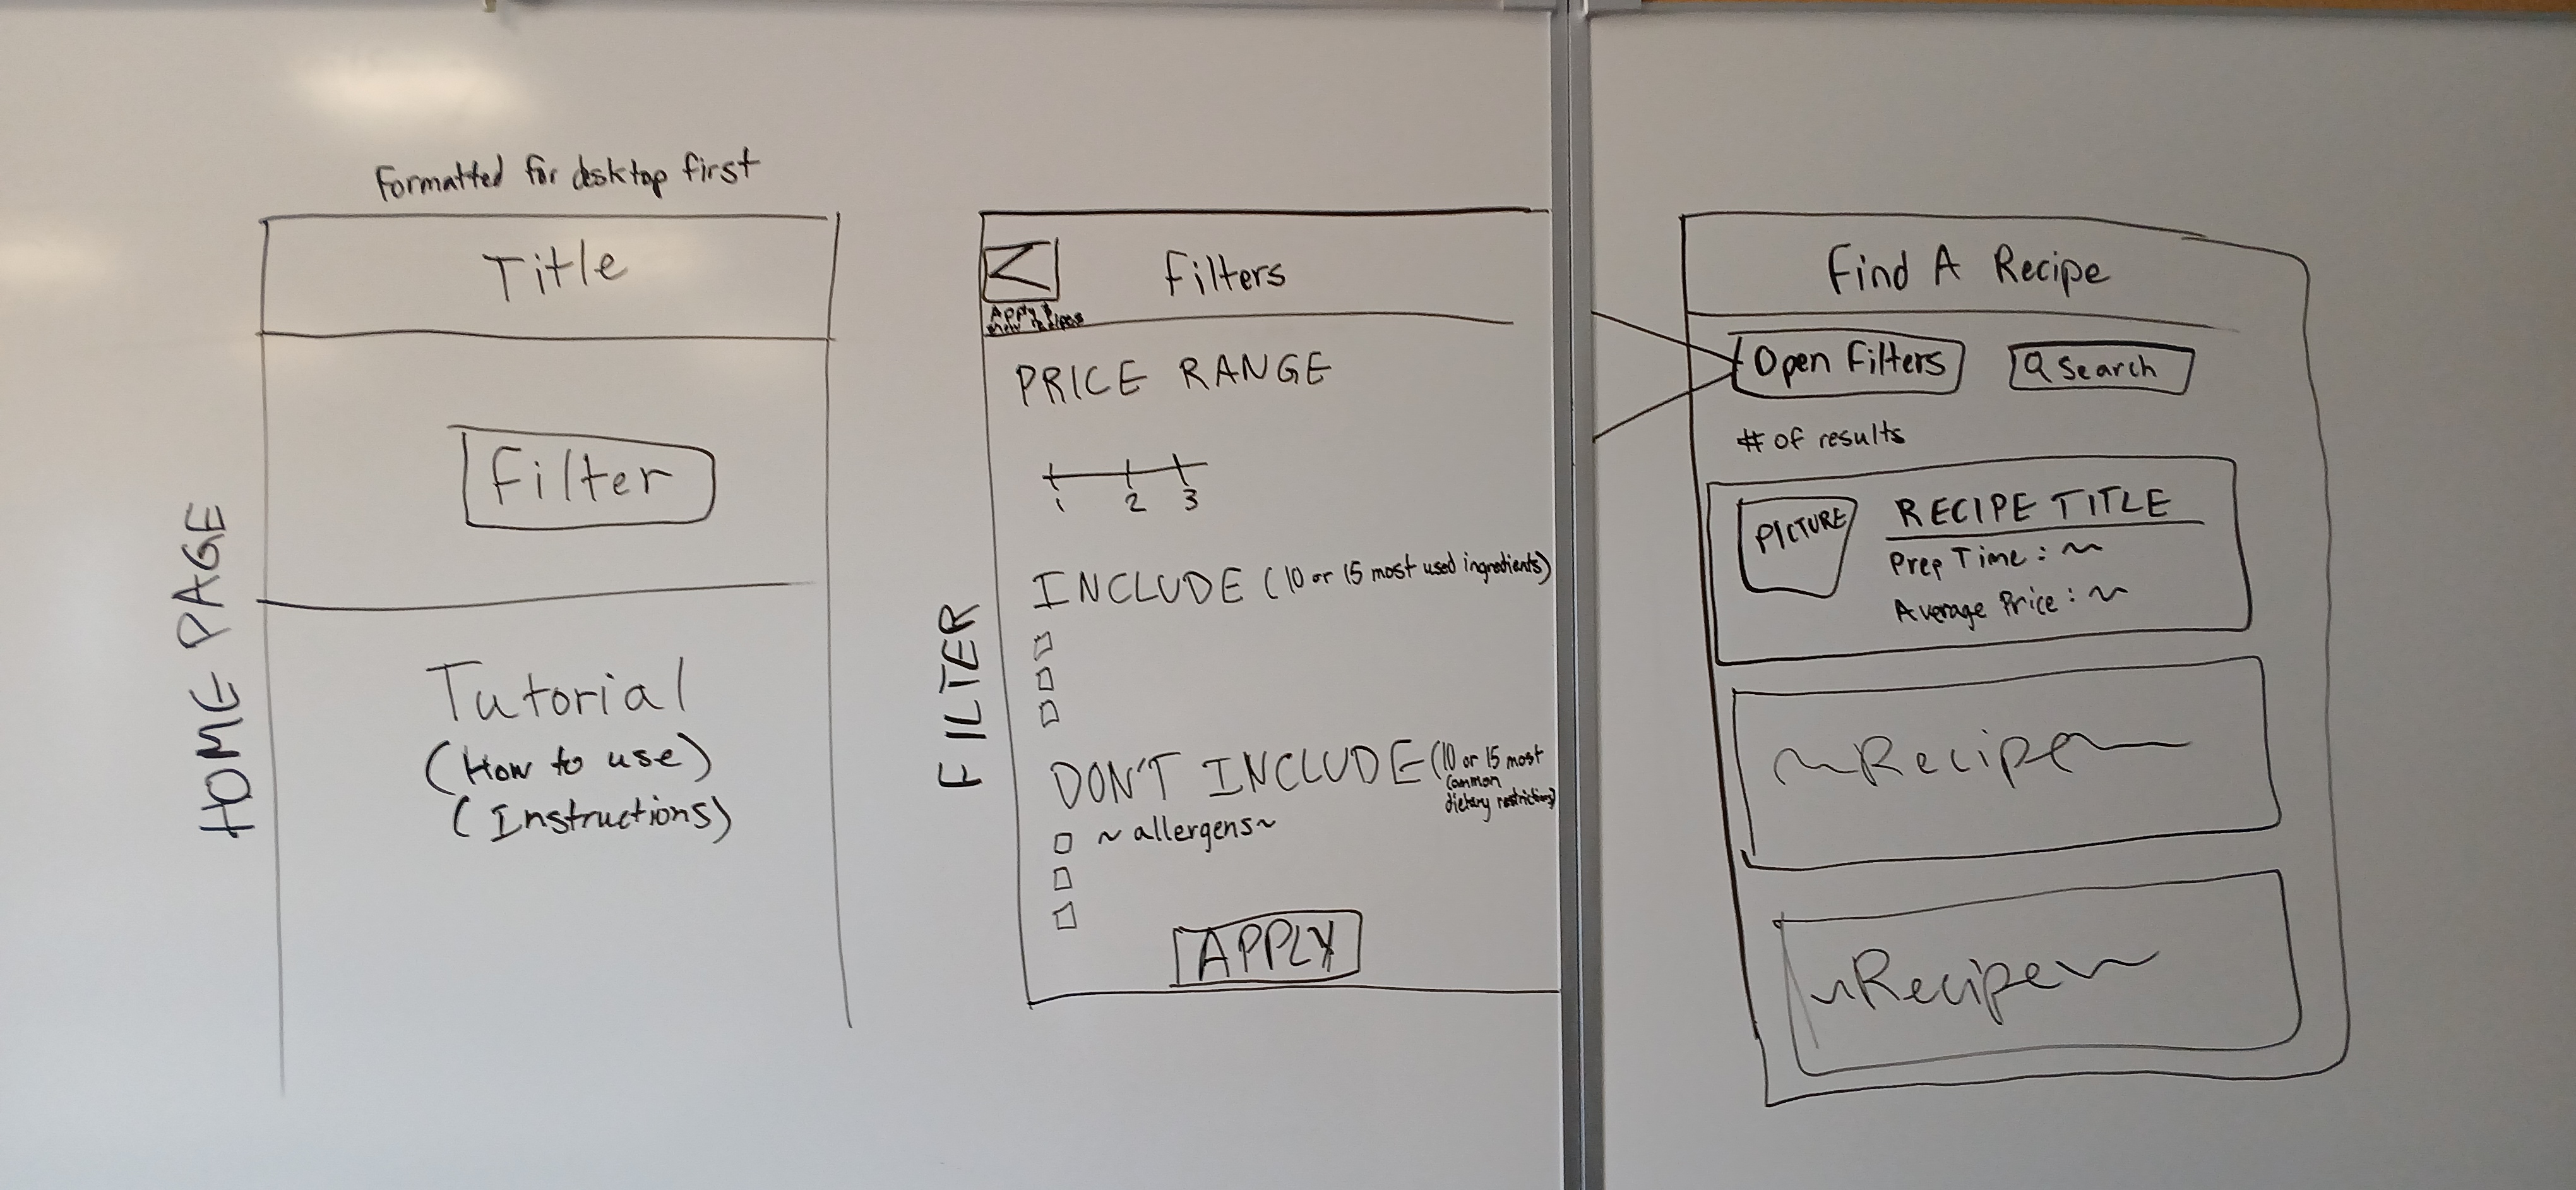 Formatted for desktop first
HOME PAGE
Title
Filter
Tutorial
(How to use)
(Instructions)
FILTER
Filters
Apply &
show recipes
PRICE RANGE
1 2 3
INCLUDE (10 or 15 most used ingredients)
DON'T INCLUDE (10 or 15 most
common
dietary restrictions)
~ allergens ~
APPLY
Find A Recipe
Open Filters
Search
# of results
PICTURE
RECIPE TITLE
Prep Time : ~
Average Price : ~
~Recipe~
~Recipe~